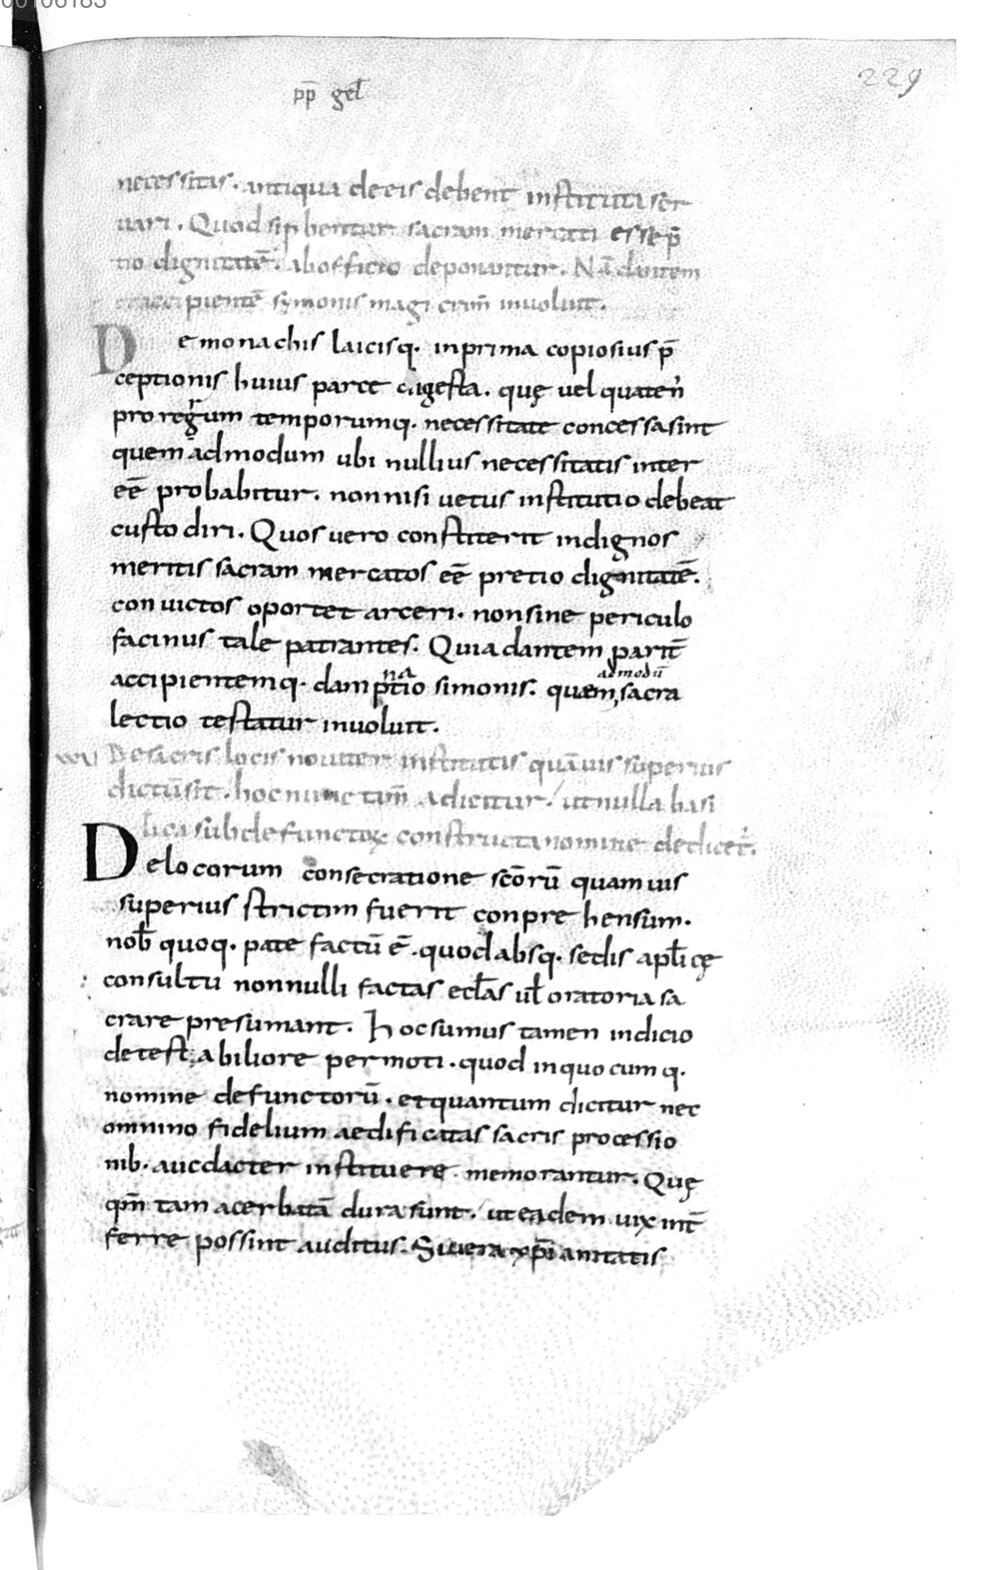 00106185
229
pp̄ gel̄
necessitas. antiqua de eis debent instituta ser
uari. Quod si phentur sacram mercati esse p̄
tio dignitatē. ab officio deponantur. Nā dantem
accipientē symonis magi crim̄ inuoluit.
De monachis laicisq. in prima copiosius p̄
ceptionis huius parte digesta. quę uel quaten᾿
pro regrum temporumq. necessitate concessa sint
quem admodum ubi nullius necessitatis inter
eē probabitur. non nisi uetus institutio debeat
custodiri. Quos uero constiterit indignos
meritis sacram mercatos eē pretio dignitatē.
conuictos oportet arceri. non sine periculo
facinus tale patrantes. Quia dantem parit̄
admodū
accipientemq. dampnatio simonis. quem, sacra
lectio testatur inuoluit.
xxvi De sacris locis nouiter institutis quāuis superius
dictū sit. hoc nunc tam̄ adicitur / ut nulla basi
lica sub defunctoꝝ constructa nomine dedicet᾿.
De locorum consecratione scōrū quamuis
superius strictim fuerit conprehensum.
nob̄ quoq. pate factū ē. quod absq. sedis apl̄icę
consultu nonnulli factas ecl̄as ul̄ oratoria sa
crare presumant. Hoc sumus tamen indicio
detestabiliore permoti. quod in quocumq.
nomine defunctorū. et quantum dicitur nec
omnino fidelium aedificatas sacris processio
nib. aucdacter instituere memorantur. Quę
qm̄ tam acerbatā dura sunt / ut eadem uix int̄
ferre possint auditus. Si uera xp̄ianitatis